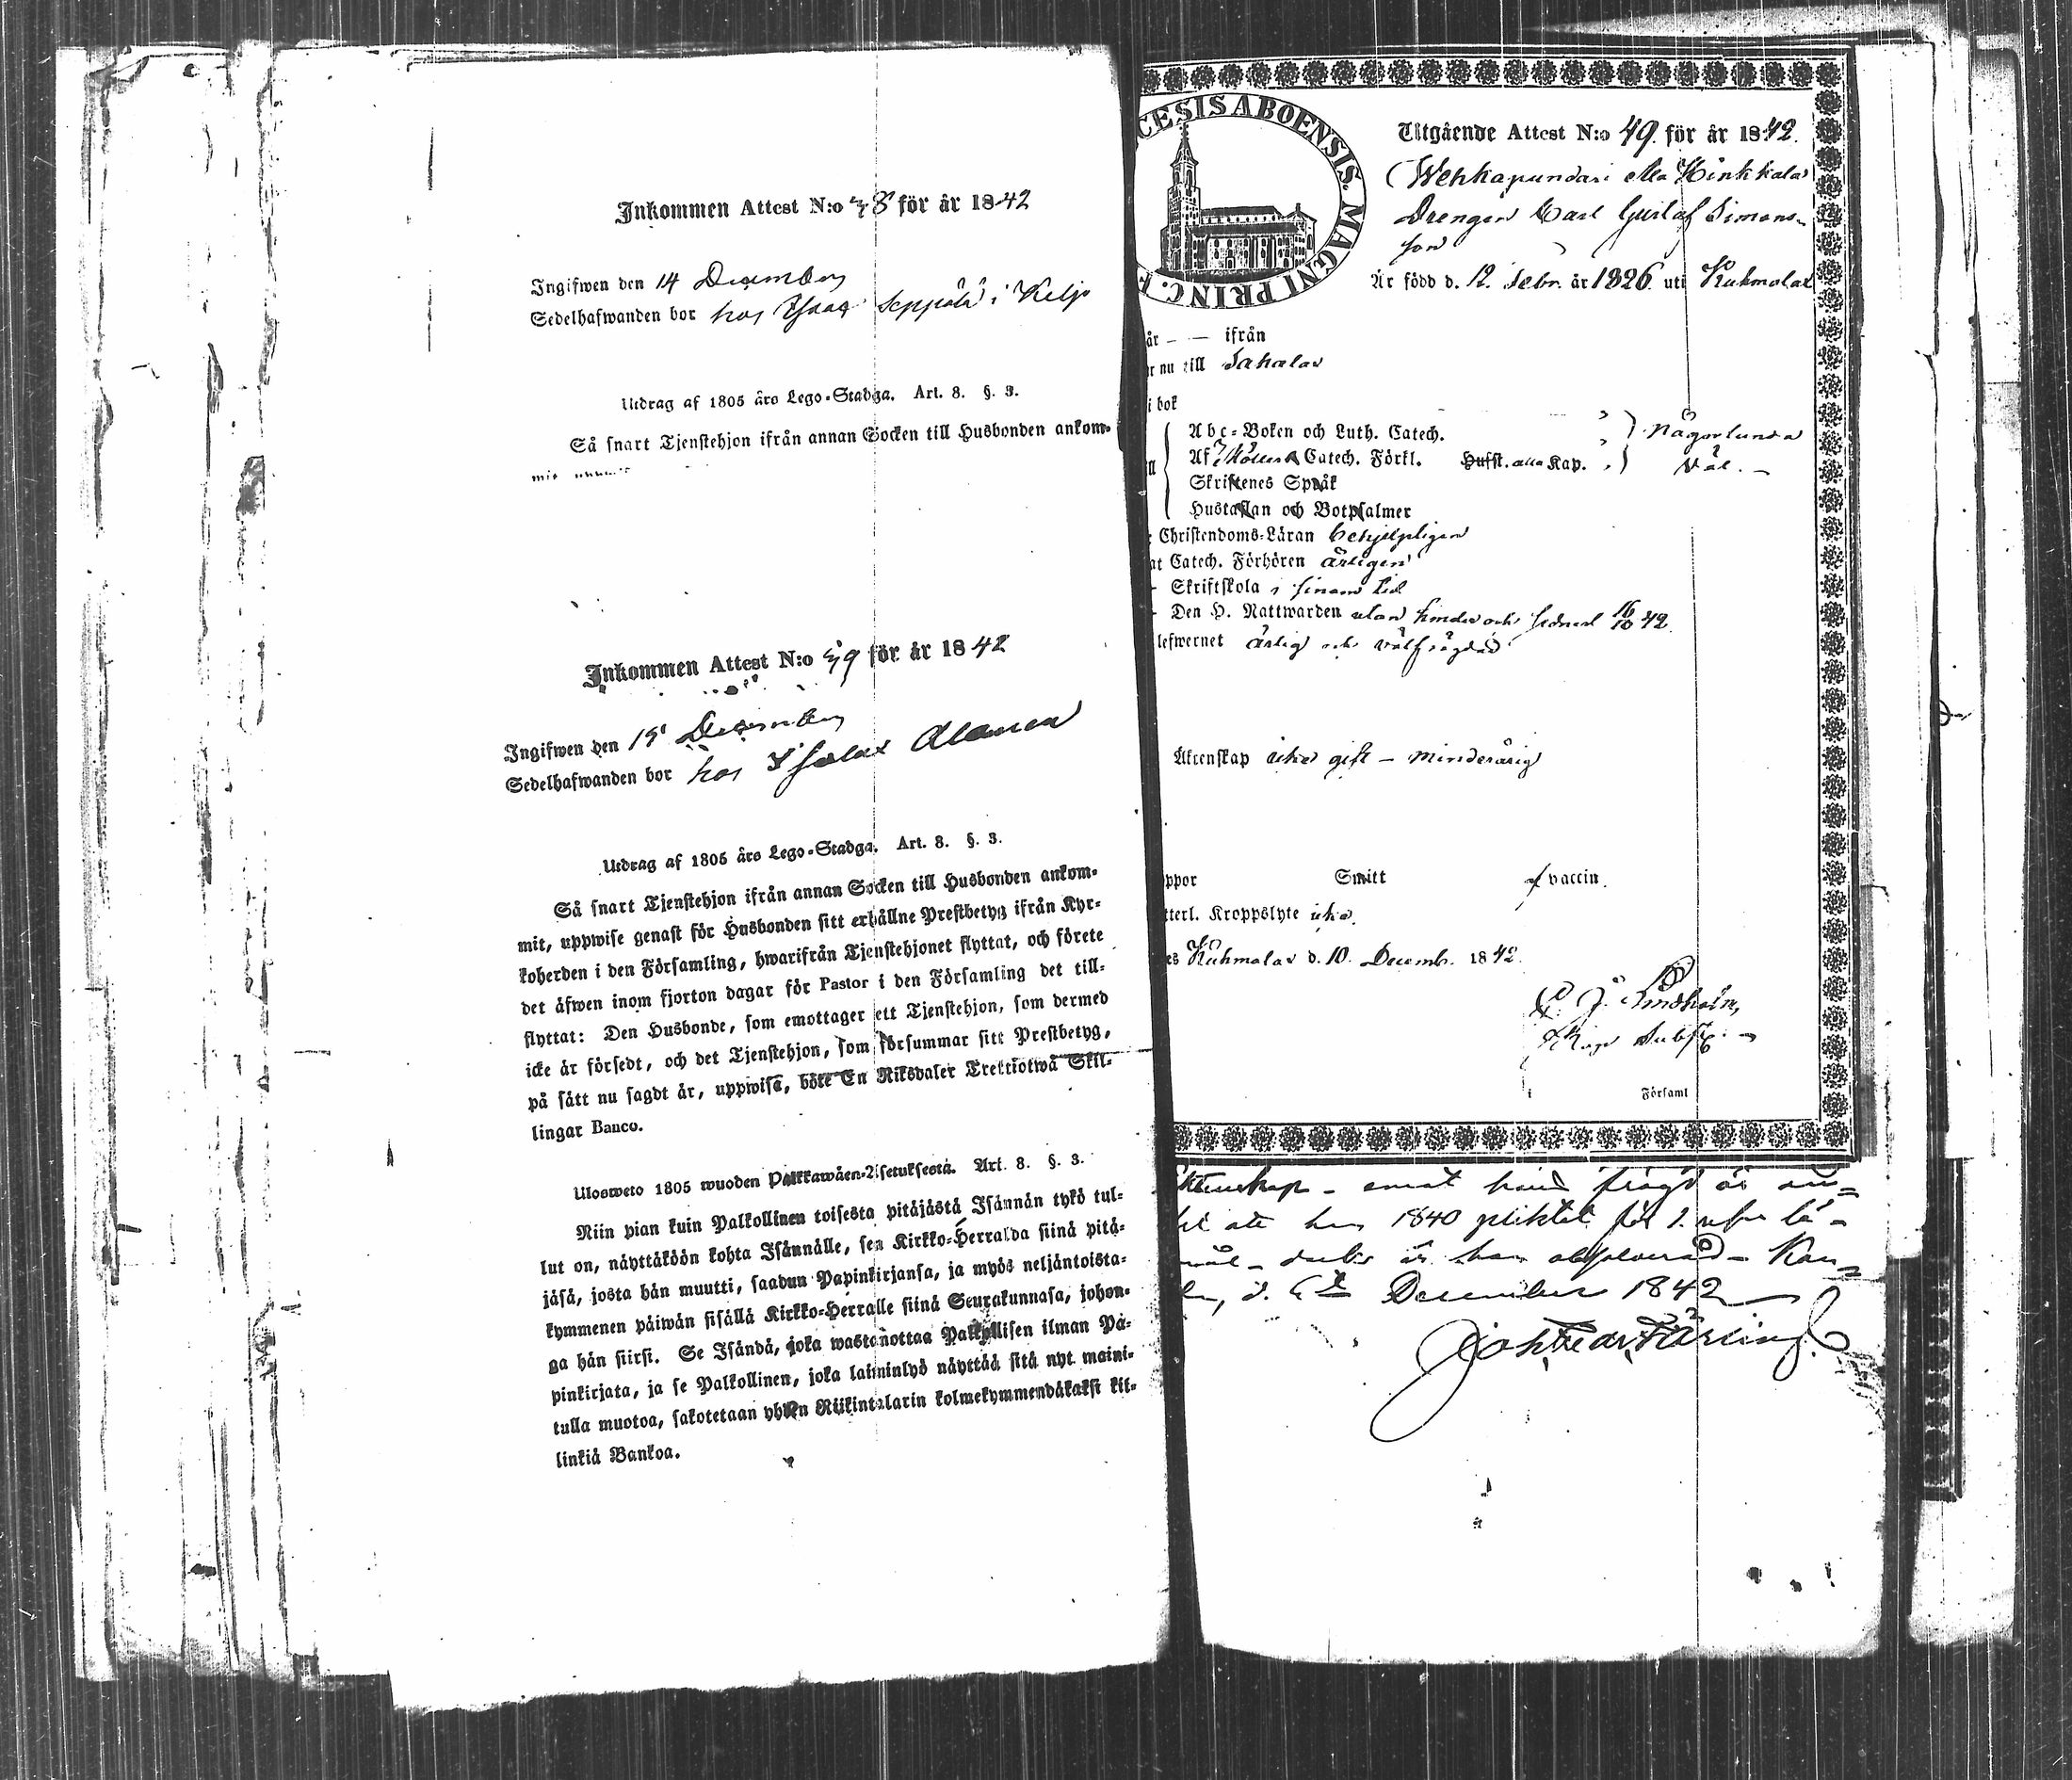 Inkommen Attest N:o 48 för år 1842
Ingifwen den 14 December
Sedelhafwanden bor hos Isaac Seppälä i Keljo
Utdrag af 1805 års Lego-Stadga. Art. 8. §. 3.
Så snart Tjenstehjon ifrån annan Socken till Husbonden ankom-
Inkommen Attest N:o 49 för år 1842
Ingifwen den 15 December
Sedelhafwanden bor hos
Utdrag af 1805 års Lego-Stadga. Art. 8. §. 3.
Så snart Tjenstehjon ifrån annan Socken till Husbonden ankom-
mit, uppwise genast för Husbonden sitt erhållne Prestbetyg ifrån Kyr-
koherden i den Församling, hwarifrån Tjenstehjonet flyttat, och förete
det äfwen inom fjorton dagar för Pastor i den Församling det till-
flyttat: Den Husbonde, som emottager ett Tjenstehjon, som dermed
icke är försedt, och det Tjenstehjon, som försummar sitt Prestbetyg,
på sätt nu sagdt är, uppwisa, böte En Riksdaler Trettiotwå Skil-
lingar Banco.
Ulosweto 1805 wuoden Palkkawäen-Asetuksesta. Art. 8. §. 3.
Niin pian kuin Palkollinen toisesta pitäjästä Isännän tykö tul-
lut on, näyttäköön kohta Isännälle, sen Kirkko-Herralda siinä pitä-
jäsä, josta hän muutti, saadun Papinkirjansa, ja myös neljäntoista-
kymmenen päiwän sisällä Kirkko-Herralle siinä Seurakunnasa, johon-
ga hän siirsi. Se Isändä, joka wastanottaa Palkollisen ilman Pa-
pinkirjata, ja se Palkollinen, joka laiminlyö näyttää sitä nyt maini-
tulla muotoa, sakotetaan yhden Riikintalarin kolmekymmendäkaksi kil-
linkiä Bankoa.
CESIS ABOENSIS. MAGNI PRINC. F
Utgående Attest N:o 49. för år 1842.
Drengen Carl Gustaf Simons-
son
Är född d. 12. Febr. år 1826 uti Kuhmalax
år - - ifrån
r nu till Sahalax
i bok
Abc-Boken och Luth. Catech. Någorlunda
Af Catech. Förkl. Hufst. alla Kap. väl. -
Skriftenes Språk
Hustaflan och Botpsalmer
Christendoms-Läran behjelpligen
at Catech. Förhören årligen
Skriftskola i sinom tid
Den H. Nattwarden utan hinder och sednast 16/10 42.
lefwernet ärlig och välfrägdad
Äktenskap icke gift - minderårig
ppor Smitt af vaccin.
tterl. Kroppslyte icke.
es Kuhmalax d. 10. Decemb. 1842.
Församl
Äktenskap -
1840 pliktat för 1.
d. December 1842